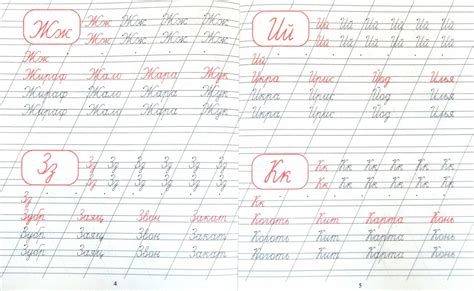 Жж
Жж Жж Жж Жж
Жж Жж Жж Жж
Жж
Жираф Жало Жара Жук
Жираф Жало Жара Жук
Жираф Жало Жара Жук
Зз
Зз Зз Зз Зз Зз Зз
Зз Зз Зз Зз Зз Зз
Зз
Зубр Заяц Звон Закат
Зубр Заяц Звон Закат
Зубр Заяц Звон Закат
4
Ий
Ий Ий Ий Ий Ий Ий
Ий Ий Ий Ий Ий Ий
Ий
Икра Ирис Йод Илья
Икра Ирис Йод Илья
Икра Ирис Йод Илья
Кк
Кк Кк Кк Кк Кк Кк
Кк Кк Кк Кк Кк Кк
Кк
Коготь Кит Карта Конь
Коготь Кит Карта Конь
Коготь Кит Карта Конь
5